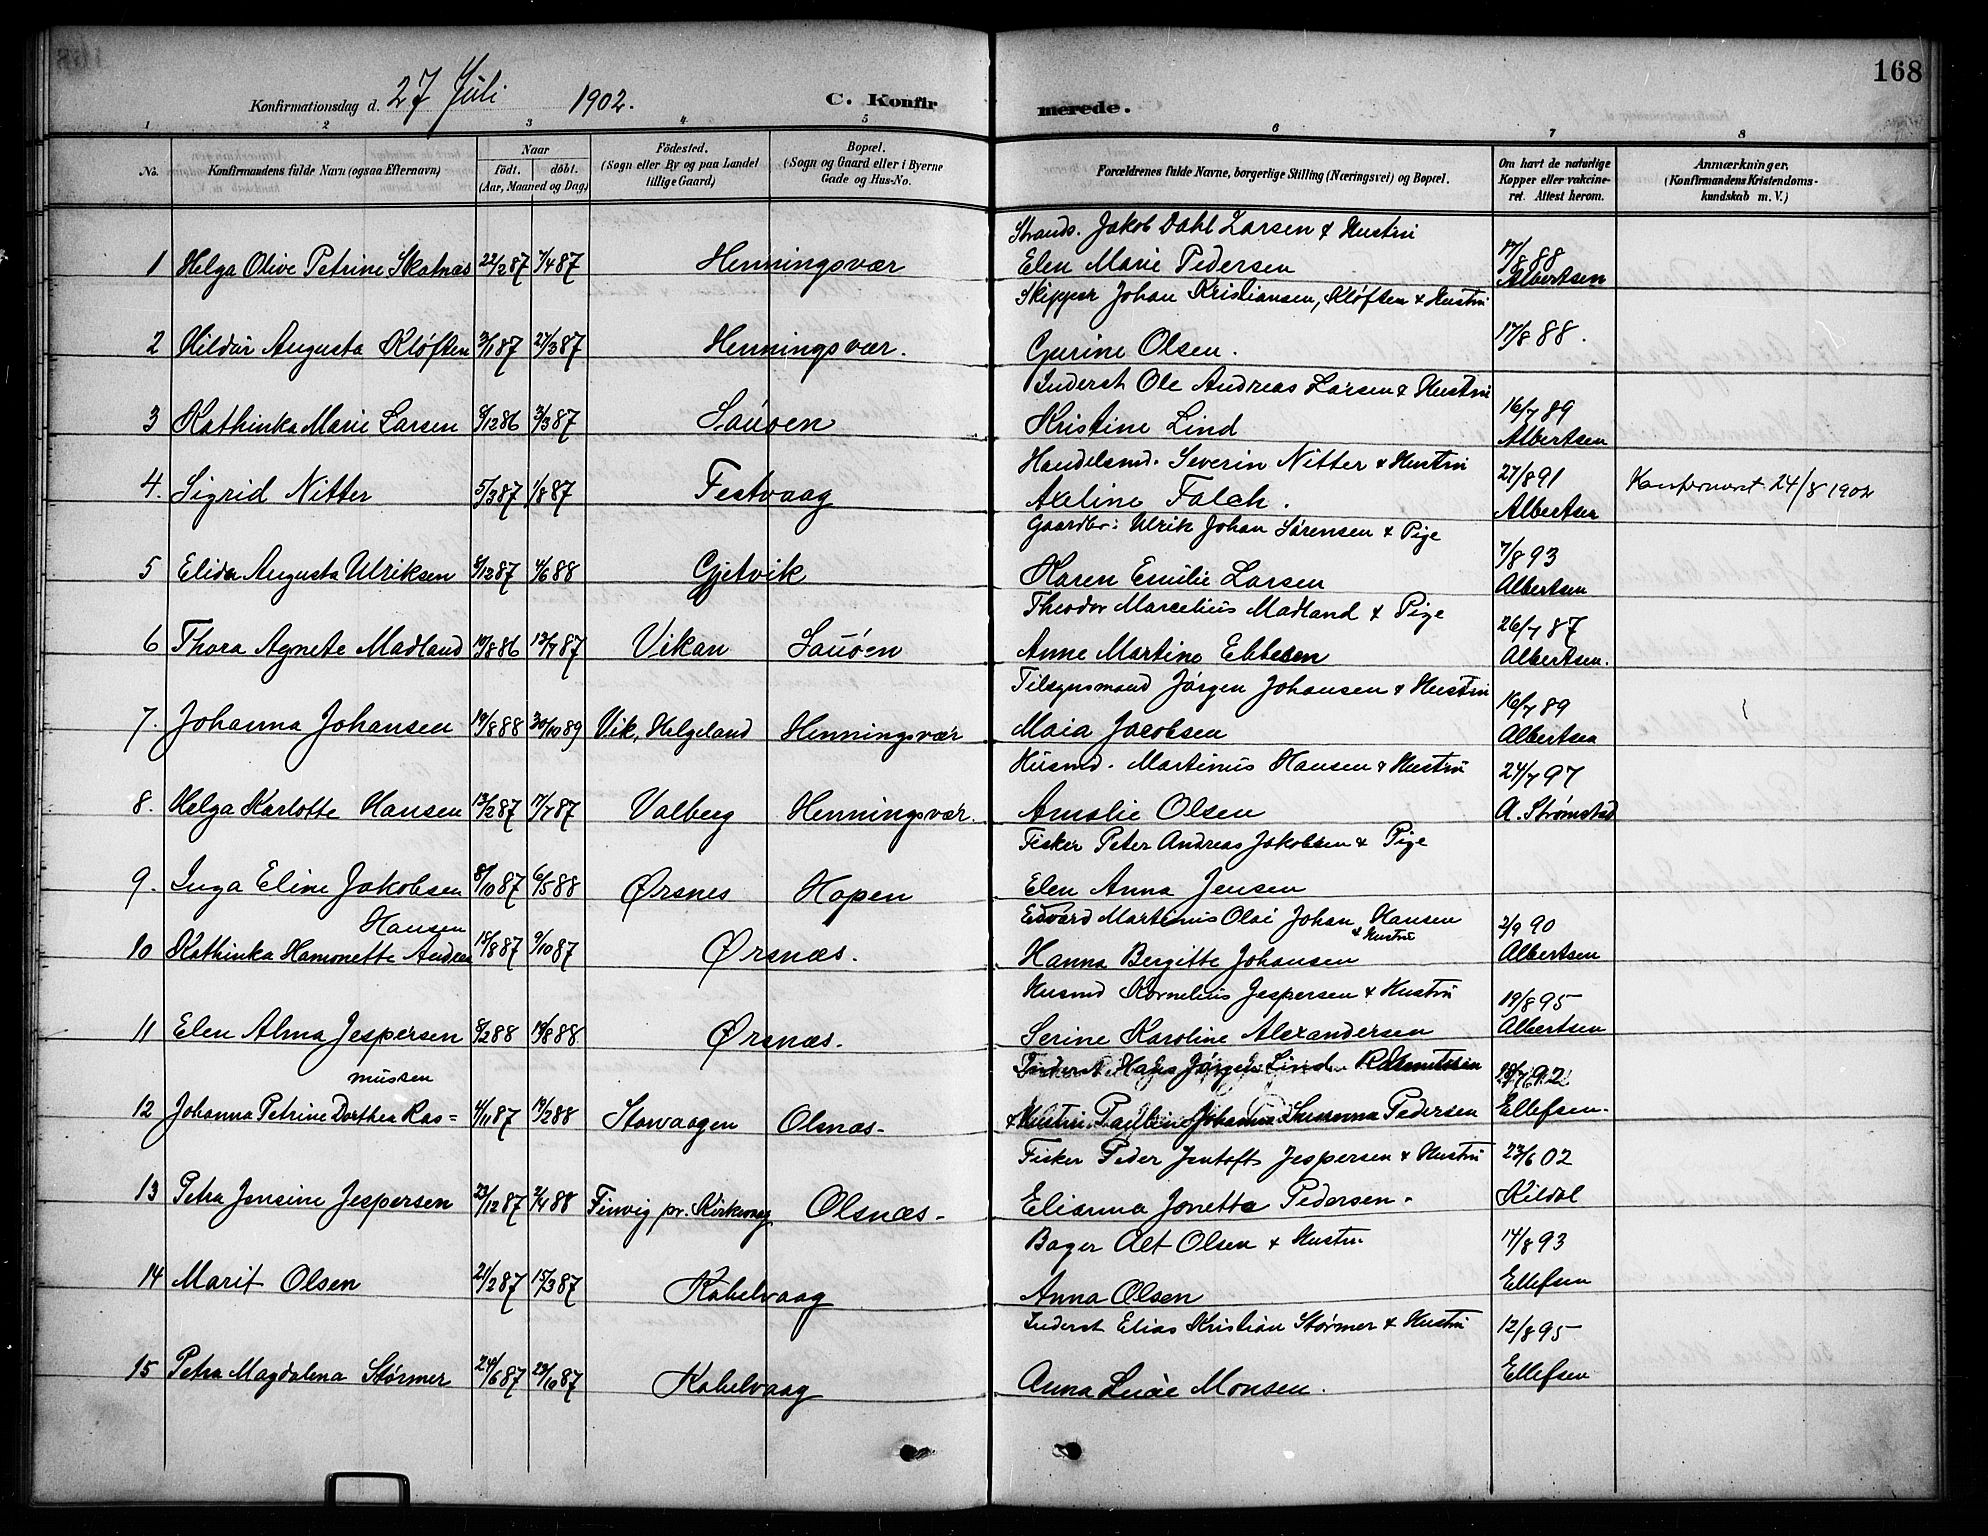 168
Konfirmationsdag d. 27 Juli 1902. C. Konfir merede.
1 2 3 4 5 6 7 8
No. Konfirmandens fulde Navn (ogsaa Efternavn) Naar født. døbt. (Aar, Maaned og Dag) Fødested. (Sogn eller By og paa Landet tillige Gaard) Bopæl. (Sogn og Gaard eller i Byerne Gade og Hus-No. Forældrenes fulde Navne, borgerlige Stilling (Næringsvei) og Bopæl. Om havt de naturlige Kopper eller vakcineret. Attest herom. Anmærkninger. (Konfirmandens Kristendomskundskab m. V.)
Strands. Jakob Dahl Larsen & Hustru
1 Helga Olive Petrine Skatnæs 22/2 87 7/4 87 Henningsvær Elen Marie Pedersen 17/8 88 Albertsen
Skipper Johan Kristiansen, Kløften & Hustru
2 Hildur Augusta Kløften 3/1 87 27/3 87 Henningsvær. Gurine Olsen. 17/8 88.
Inderst Ole Andreas Larsen & Hustru
3 Kathinka Marie Larsen 8/12 86 3/3 87 Sauøen Kristine Lind 16/7 89 Albertsen
Handelsmd. Severin Nitter & Hustru
4. Sigrid Nitter 5/3 87 1/8 87 Festvaag Axeline Falch. 27/8 91 Albertsen Konfirmeret 24/8 1902
Gaardbr: Ulrik Johan Sørensen & Pige
5 Elida Augusta Ulriksen 8/12 87 4/6 88 Gjetvik Karen Emilie Larsen 7/8 93 Albertsen
Theodor Marcelius Madland & Pige
6 Thora Agnete Madland 19/8 86 13/7 87 Vikan Sauøen Anne Martine Ebbesen 26/7 87 Albertsen.
Tilsynsmand Jørgen Johansen & Hustru
7. Johanna Johansen 19/8 88 30/10 89 Vik, Helgeland Henningsvær Maia Jacobsen 16/7 89 Albertsen
Husmd. Martinus Hansen & Hustru
8. Helga Karlotte Hansen 13/2 87 17/7 87 Valberg Henningsvær. Amalie Olsen 24/7 97 A. Strømstad
Fisker Peter Andreas Jakobsen & Pige
9. Inga Eline Jakobsen 8/10 87 6/5 88 Ørsnes Hopen Elen Anna Jensen
Hansen Edvard Martinus Olai Johan Hansen & Hustru
10 Kathinka Hamonette Andrea 15/8 87 9/10 87 Ørsnæs. Hanna Bergitte Johansen 2/9 90 Albertsen
Husmd Kornelius Jespersen & Hustru
11 Elen Alma Jespersen 8/2 88 19/8 88 Ørsnæs. Serine Karoline Alexandersen 19/8 95 Albertsen
mussen Inderst Hans Jørgen Lind Rasmussen
12 Johanna Petrine Dorthea Ras= 4/11 87 19/2 88 Storvaagen Olsnæs- & Hustru Pauline Johanna Susanna Pedersen Ellefsen.
Fisker Peder Jentoft Jespersen & Hustru
13 Petra Jensine Jespersen 23/12 87 2/4 88 Finvig pr. Kirkevaag Olsnæs- Elianna Jonetta Pedersen. 23/6 02 Kildal
Bager Alt Olsen & Hustru
14 Marit Olsen 21/2 87 15/3 87 Kabelvaag Anna Olsen 14/8 93 Ellefsen
Inderst Elias Kristian Størmer & Hustru
15 Petra Magdalena Størmer 24/6 87 23/10 87 Kabelvaag Anna Lucie Monsen. 12/8 95 Ellefsen